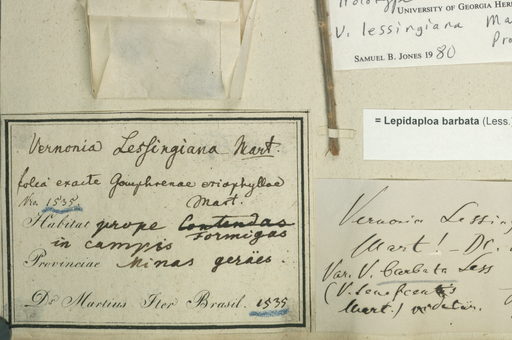 Holotype
UNIVERSITY OF GEORGIA HER
V. lessingiana Ma
Pro
SAMUEL B. JONES 1980
= Lepidaploa barbata (Less.)
Vernonia Lessingiana Mart.
folia exacte Gomphrenae eriophyllae
Mart.
No. 1535
Habitat prope Contendas
Formigas
in campis
Provinciae Minas geraes.
Dr Martius Iter Brasil. 1535
Vernonia Lessing
Mart! - DC.
Var. V. barbata Less
Mart.) videtur.